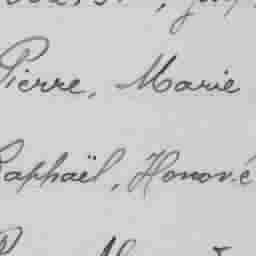 Pierre, Marie
Raphaël, Honoré